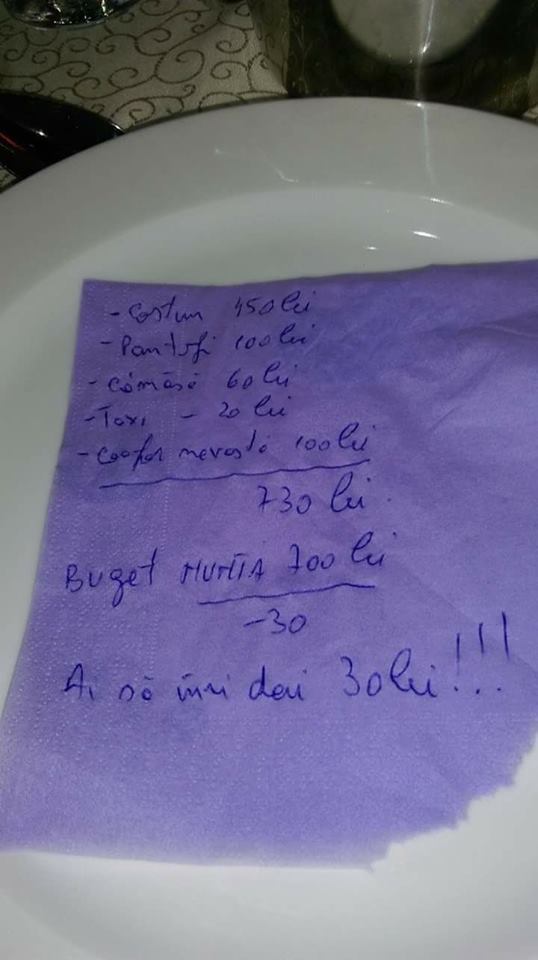 - Costum 450 lei
- Pantofi 100 lei
- Cămăsă 60 lei
- Taxi - 20 lei
- Coafor nevastă 100 lei
730 lei
Buget NUNTA 700 lei
-30
Ai să îmi dai 30 lei!!!